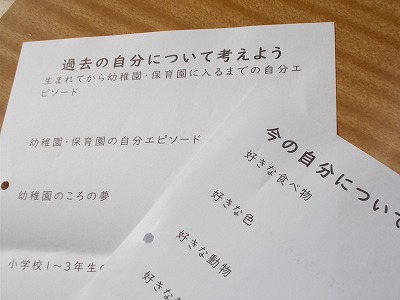 過去の自分について考えよう
生まれてから幼稚園・保育園に入るまでの自分エ
ピソード
幼稚園・保育園の自分エピソード
幼稚園のころの夢
小学校1~3年生
今の自分について
好きな食べ物
好きな色
好きな動物
好きな